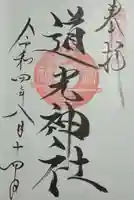 奉拝
道光神社
令和四年八月十四日